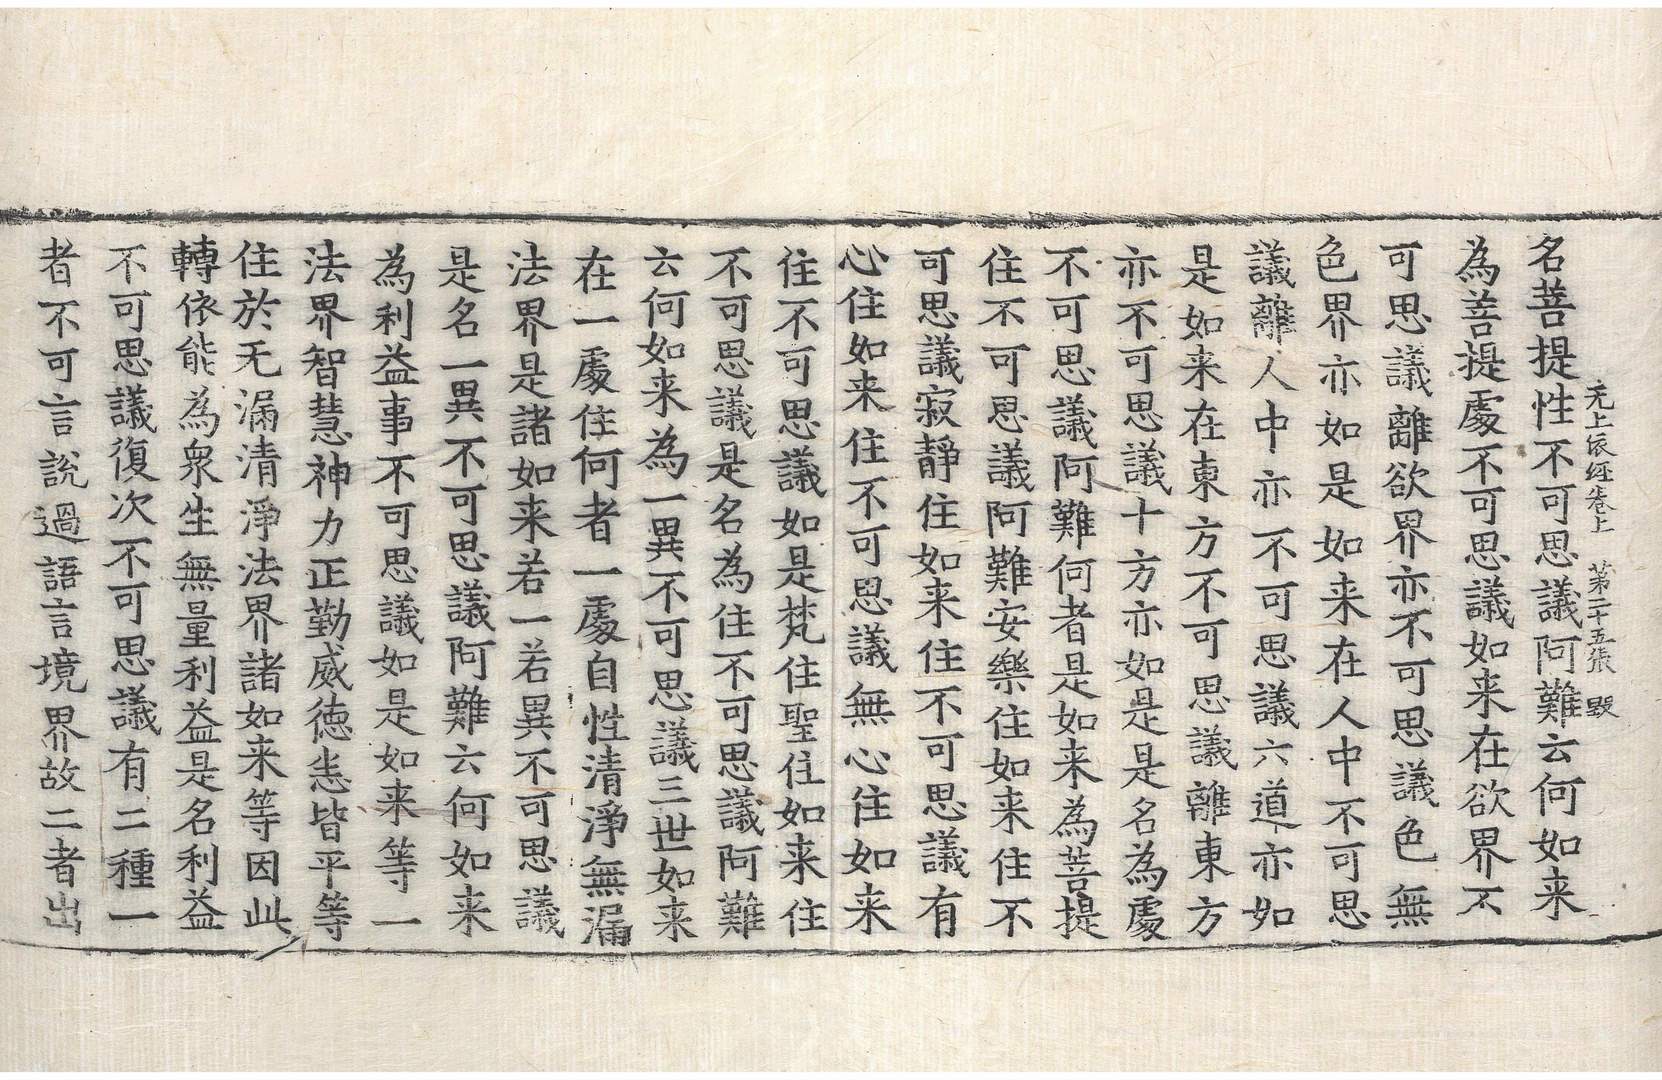 无上依經卷上　第二十五張　毀
名菩提性不可思議阿難云何如来
為菩提處不可思議如来在欲界不
可思議離欲界亦不可思議色無
色界亦如是如来在人中不可思
議離人中亦不可思議六道亦如
是如来在東方不可思議離東方
亦不可思議十方亦如是是名為處
不可思議阿難何者是如来為菩提
住不可思議阿難安樂住如来住不
可思議寂靜住如来住不可思議有
心住如来住不可思議無心住如来
住不可思議如是梵住聖住如来住
不可思議是名為住不可思議阿難
云何如来為一異不可思議三世如来
在一處住何者一處自性清淨無漏
法界是諸如来若一若異不可思議
是名一異不可思議阿難云何如来
為利益事不可思議如是如来等一
法界智慧神力正勤威徳恚皆平等
住於无漏清淨法界諸如来等因此
轉依能為衆生無量利益是名利益
不可思議復次不可思議有二種一
者不可言說過語言境界故二者出